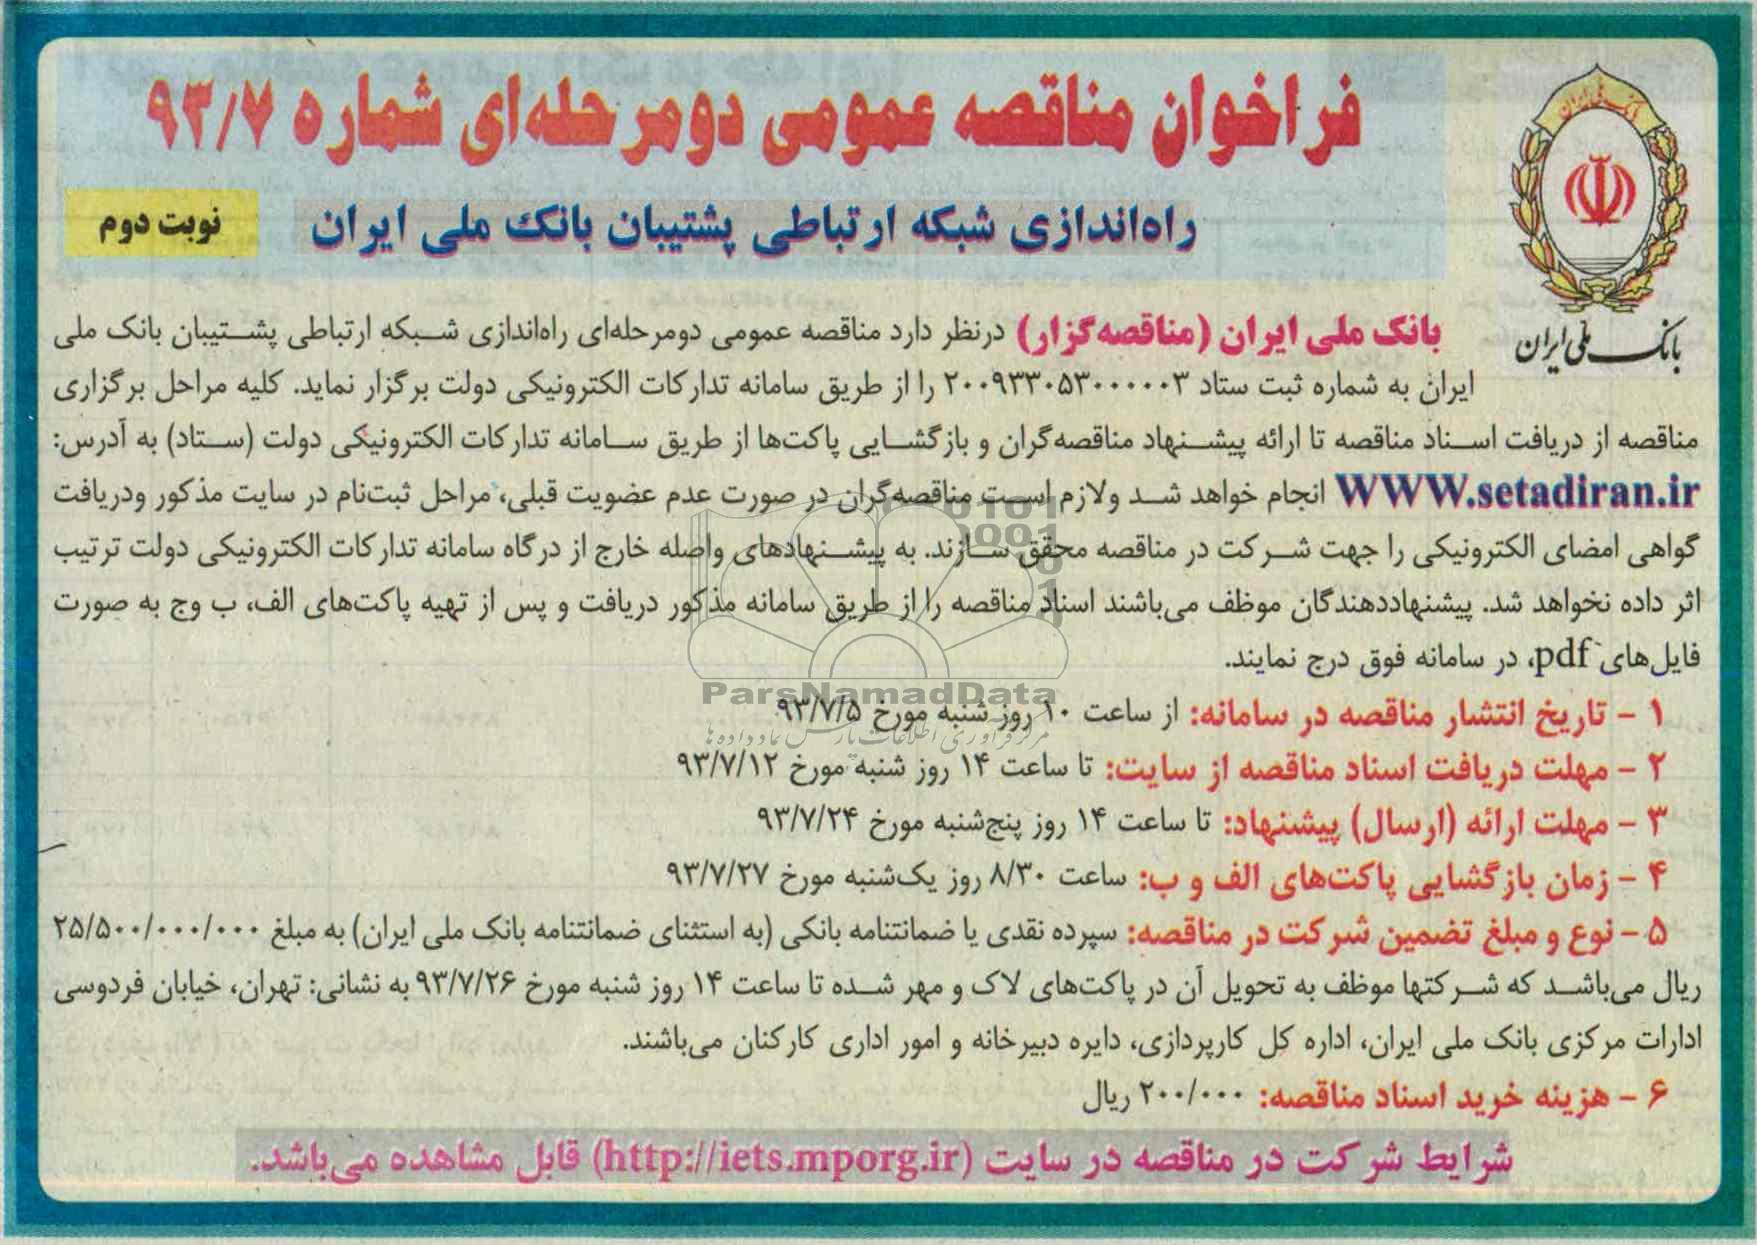 فراخوان مناقصه عمومی دومرحله‌ای شماره ۹۳/۷
راه‌اندازی شبکه ارتباطی پشتیبان بانک ملی ایران
نوبت دوم
بانک ملی ایران
بانک ملی ایران (مناقصه‌گزار) درنظر دارد مناقصه عمومی دومرحله‌ای راه‌اندازی شبکه ارتباطی پشتیبان بانک ملی
ایران به شماره ثبت ستاد ۲۰۰۹۳۳۰۵۳۰۰۰۰۰۳ را از طریق سامانه تدارکات الکترونیکی دولت برگزار نماید. کلیه مراحل برگزاری
مناقصه از دریافت اسناد مناقصه تا ارائه پیشنهاد مناقصه‌گران و بازگشایی پاکت‌ها از طریق سامانه تدارکات الکترونیکی دولت (ستاد) به آدرس:
WWW.setadiran.ir انجام خواهد شد ولازم است مناقصه‌گران در صورت عدم عضویت قبلی، مراحل ثبت‌نام در سایت مذکور ودریافت
گواهی امضای الکترونیکی را جهت شرکت در مناقصه محقق سازند. به پیشنهادهای واصله خارج از درگاه سامانه تدارکات الکترونیکی دولت ترتیب
اثر داده نخواهد شد. پیشنهاددهندگان موظف می‌باشند اسناد مناقصه را از طریق سامانه مذکور دریافت و پس از تهیه پاکت‌های الف، ب وج به صورت
فایل‌های pdf، در سامانه فوق درج نمایند.
ParsNamadData
مرکز فرآوری اطلاعات پارس نماد داده‌ها
۱ - تاریخ انتشار مناقصه در سامانه: از ساعت ۱۰ روز شنبه مورخ ۹۳/۷/۵
۲ - مهلت دریافت اسناد مناقصه از سایت: تا ساعت ۱۴ روز شنبه مورخ ۹۳/۷/۱۲
۳ - مهلت ارائه (ارسال) پیشنهاد: تا ساعت ۱۴ روز پنج‌شنبه مورخ ۹۳/۷/۲۴
۴ - زمان بازگشایی پاکت‌های الف و ب: ساعت ۸/۳۰ روز یک‌شنبه مورخ ۹۳/۷/۲۷
۵ - نوع و مبلغ تضمین شرکت در مناقصه: سپرده نقدی یا ضمانتنامه بانکی (به استثنای ضمانتنامه بانک ملی ایران) به مبلغ ۲۵/۵۰۰/۰۰۰/۰۰۰
ریال می‌باشد که شرکتها موظف به تحویل آن در پاکت‌های لاک و مهر شده تا ساعت ۱۴ روز شنبه مورخ ۹۳/۷/۲۶ به نشانی: تهران، خیابان فردوسی
ادارات مرکزی بانک ملی ایران، اداره کل کارپردازی، دایره دبیرخانه و امور اداری کارکنان می‌باشند.
۶ - هزینه خرید اسناد مناقصه: ۲۰۰/۰۰۰ ریال
شرایط شرکت در مناقصه در سایت (http://iets.mporg.ir) قابل مشاهده می‌باشد.